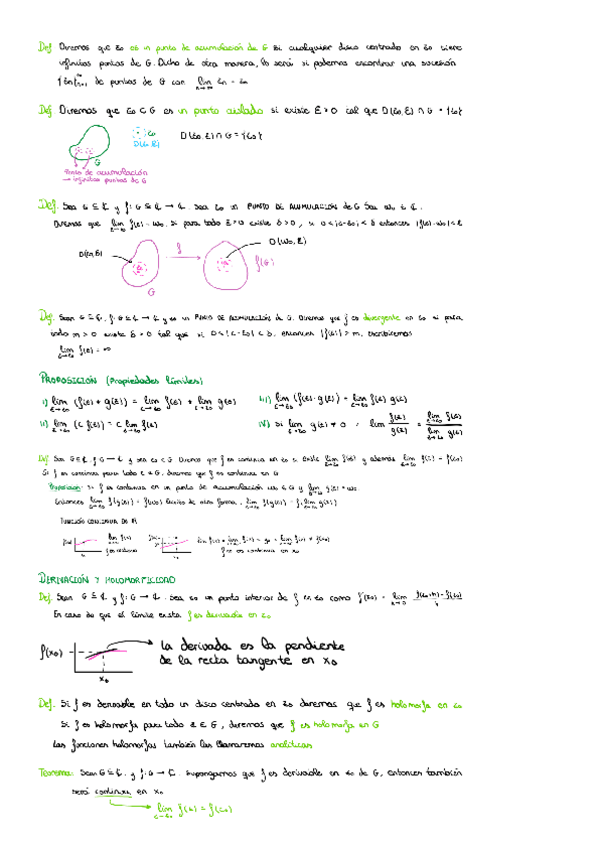 Def Diremos que z₀ es un punto de acumulación de G si cualquier disco centrado en z₀ tiene
infinitos puntos de G. Dicho de otra manera, lo será si podemos encontrar una sucesión
{zₙ}ₙ₌₁^∞ de puntos de G con lim zₙ = z₀
Def Diremos que z₀ ∈ G es un punto aislado si existe ε > 0 tal que D(z₀, ε) ∩ G = {z₀}
z₀
D(z₀, ε)
D(z₀, ε) ∩ G = {z₀}
G
Puntos de acumulación
→ infinitos puntos de G
Def. Sea G ⊆ ℂ y f: G ⊆ ℂ → ℂ. Sea z₀ un PUNTO DE ACUMULACIÓN de G. Sea w₀ ∈ ℂ.
Diremos que lim f(z) = w₀, si para todo ε > 0 existe δ > 0, si 0 < |z-z₀| < δ entonces |f(z)-w₀| < ε
D(z₀, δ)
f
D(w₀, ε)
f(G)
G
Def. Sean G ⊆ ℂ, f: G ⊆ ℂ → ℂ y z₀ un PUNTO DE ACUMULACIÓN de G. Diremos que f es divergente en z₀ si para
todo m > 0 existe δ > 0 tal que si 0 < |z-z₀| < δ, entonces |f(z)| > m. Escribiremos
lim f(z) = ∞
z→z₀
PROPOSICIÓN (Propiedades límites)
i) lim (f(z) + g(z)) = lim f(z) + lim g(z) iii) lim (f(z)·g(z)) = lim f(z) g(z)
ii) lim (c f(z)) = c lim f(z) iv) Si lim g(z) ≠ 0 : lim f(z)/g(z) = lim f(z) / lim g(z)
Def Sea G ⊆ ℂ, f: G → ℂ y sea z₀ ∈ G. Diremos que f es continua en z₀ si existe lim f(z) y además lim f(z) = f(z₀)
Si f es continua para todo z ∈ G, diremos que f es continua en G
Proposición: Si f es continua en un punto de acumulación w₀ ∈ G y lim g(z) = w₀.
Entonces lim f(g(z)) = f(w₀) Escrito de otra forma, lim f(g(z)) = f(lim g(z))
FUNCIÓN CONTINUA EN ℝ
f es continua
f no es continua en x₀
DERIVACIÓN Y HOLOMORFICIDAD
Def. Sean G ⊆ ℂ y f: G → ℂ. Sea z₀ un punto interior de f en z₀ como f'(z₀) = lim f(z₀+h)-f(z₀) / h
En caso de que el límite exista f es derivable en z₀
f(x₀)
x₀
la derivada es la pendiente
de la recta tangente en x₀
Def. Si f es derivable en todo un disco centrado en z₀ diremos que f es holomorfa en z₀
Si f es holomorfa para todo z ∈ G, diremos que f es holomorfa en G
Las funciones holomorfas también las llamaremos analíticas
Teorema: Sean G ⊆ ℂ. y f: G → ℂ. Supongamos que f es derivable en z₀ de G, entonces también
será continua en x₀
lim f(z) = f(z₀)
z→z₀